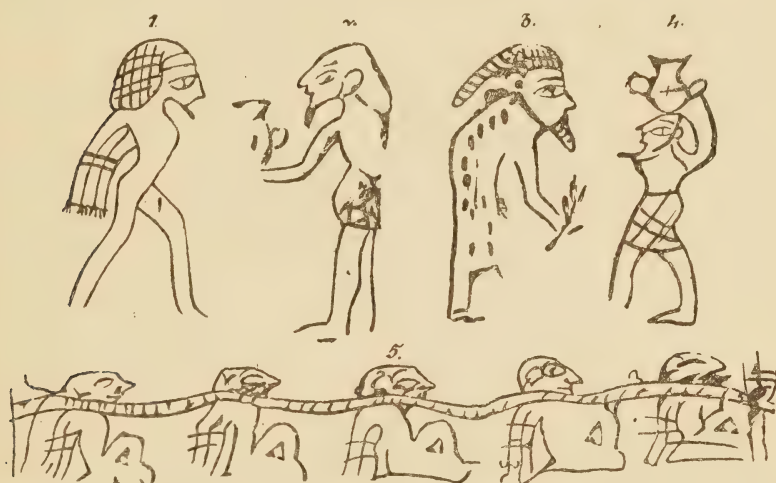 1. 2. 3. 4.
5.